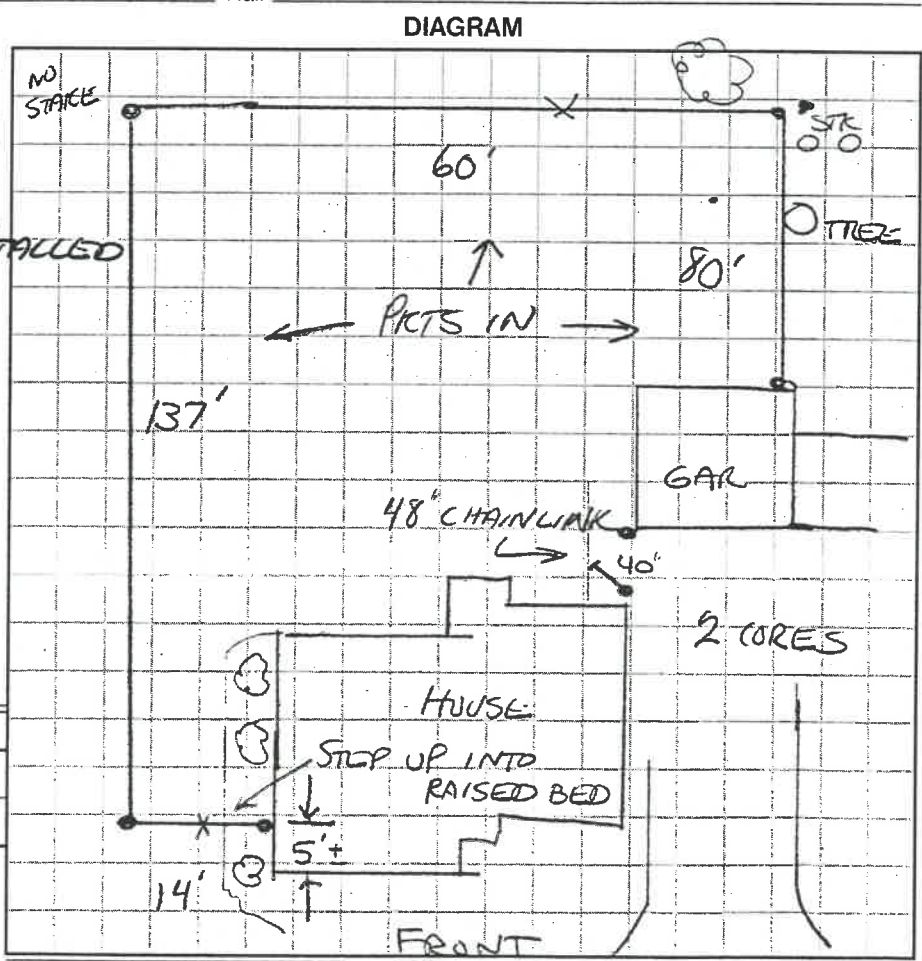 DIAGRAM
NO
STAKE
STK
60'
TREE
TALLED
80'
PKTS IN
137'
GAR
48" CHAINLINK
40"
2 CORES
HOUSE
STEP UP INTO
RAISED BED
5'±
14'
FRONT